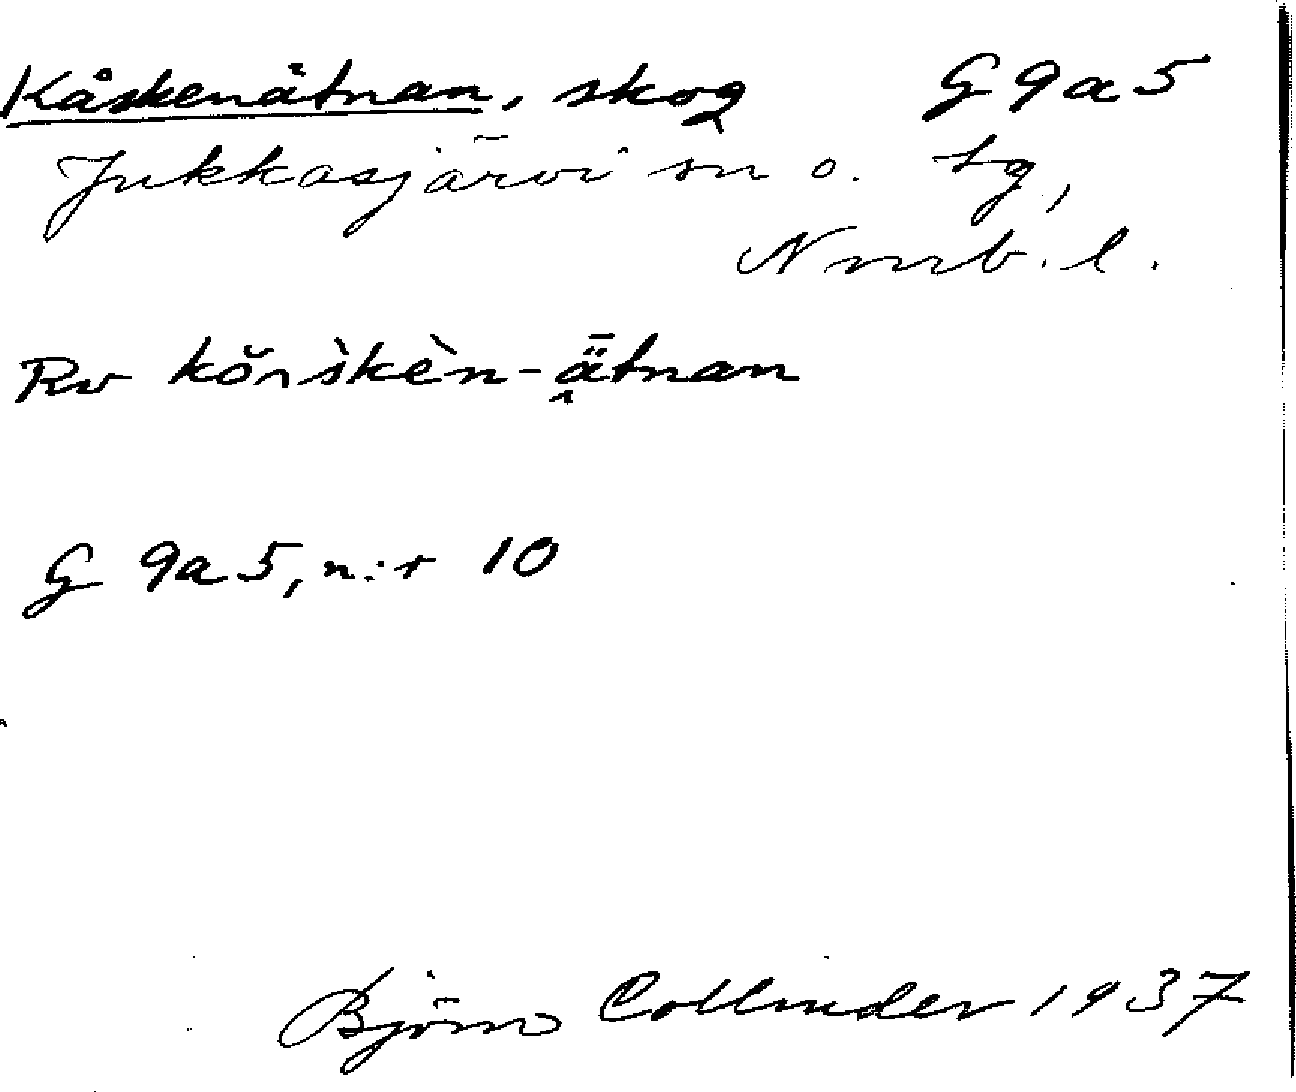 Kåskenätnan, skog G9a5
Jukkasjärvi sn o. tg,
Nmrb. l.
Rv kŏrs̀kèn-ǟ̱tnan
G 9a5, n:r 10
Björn Collinder 1937